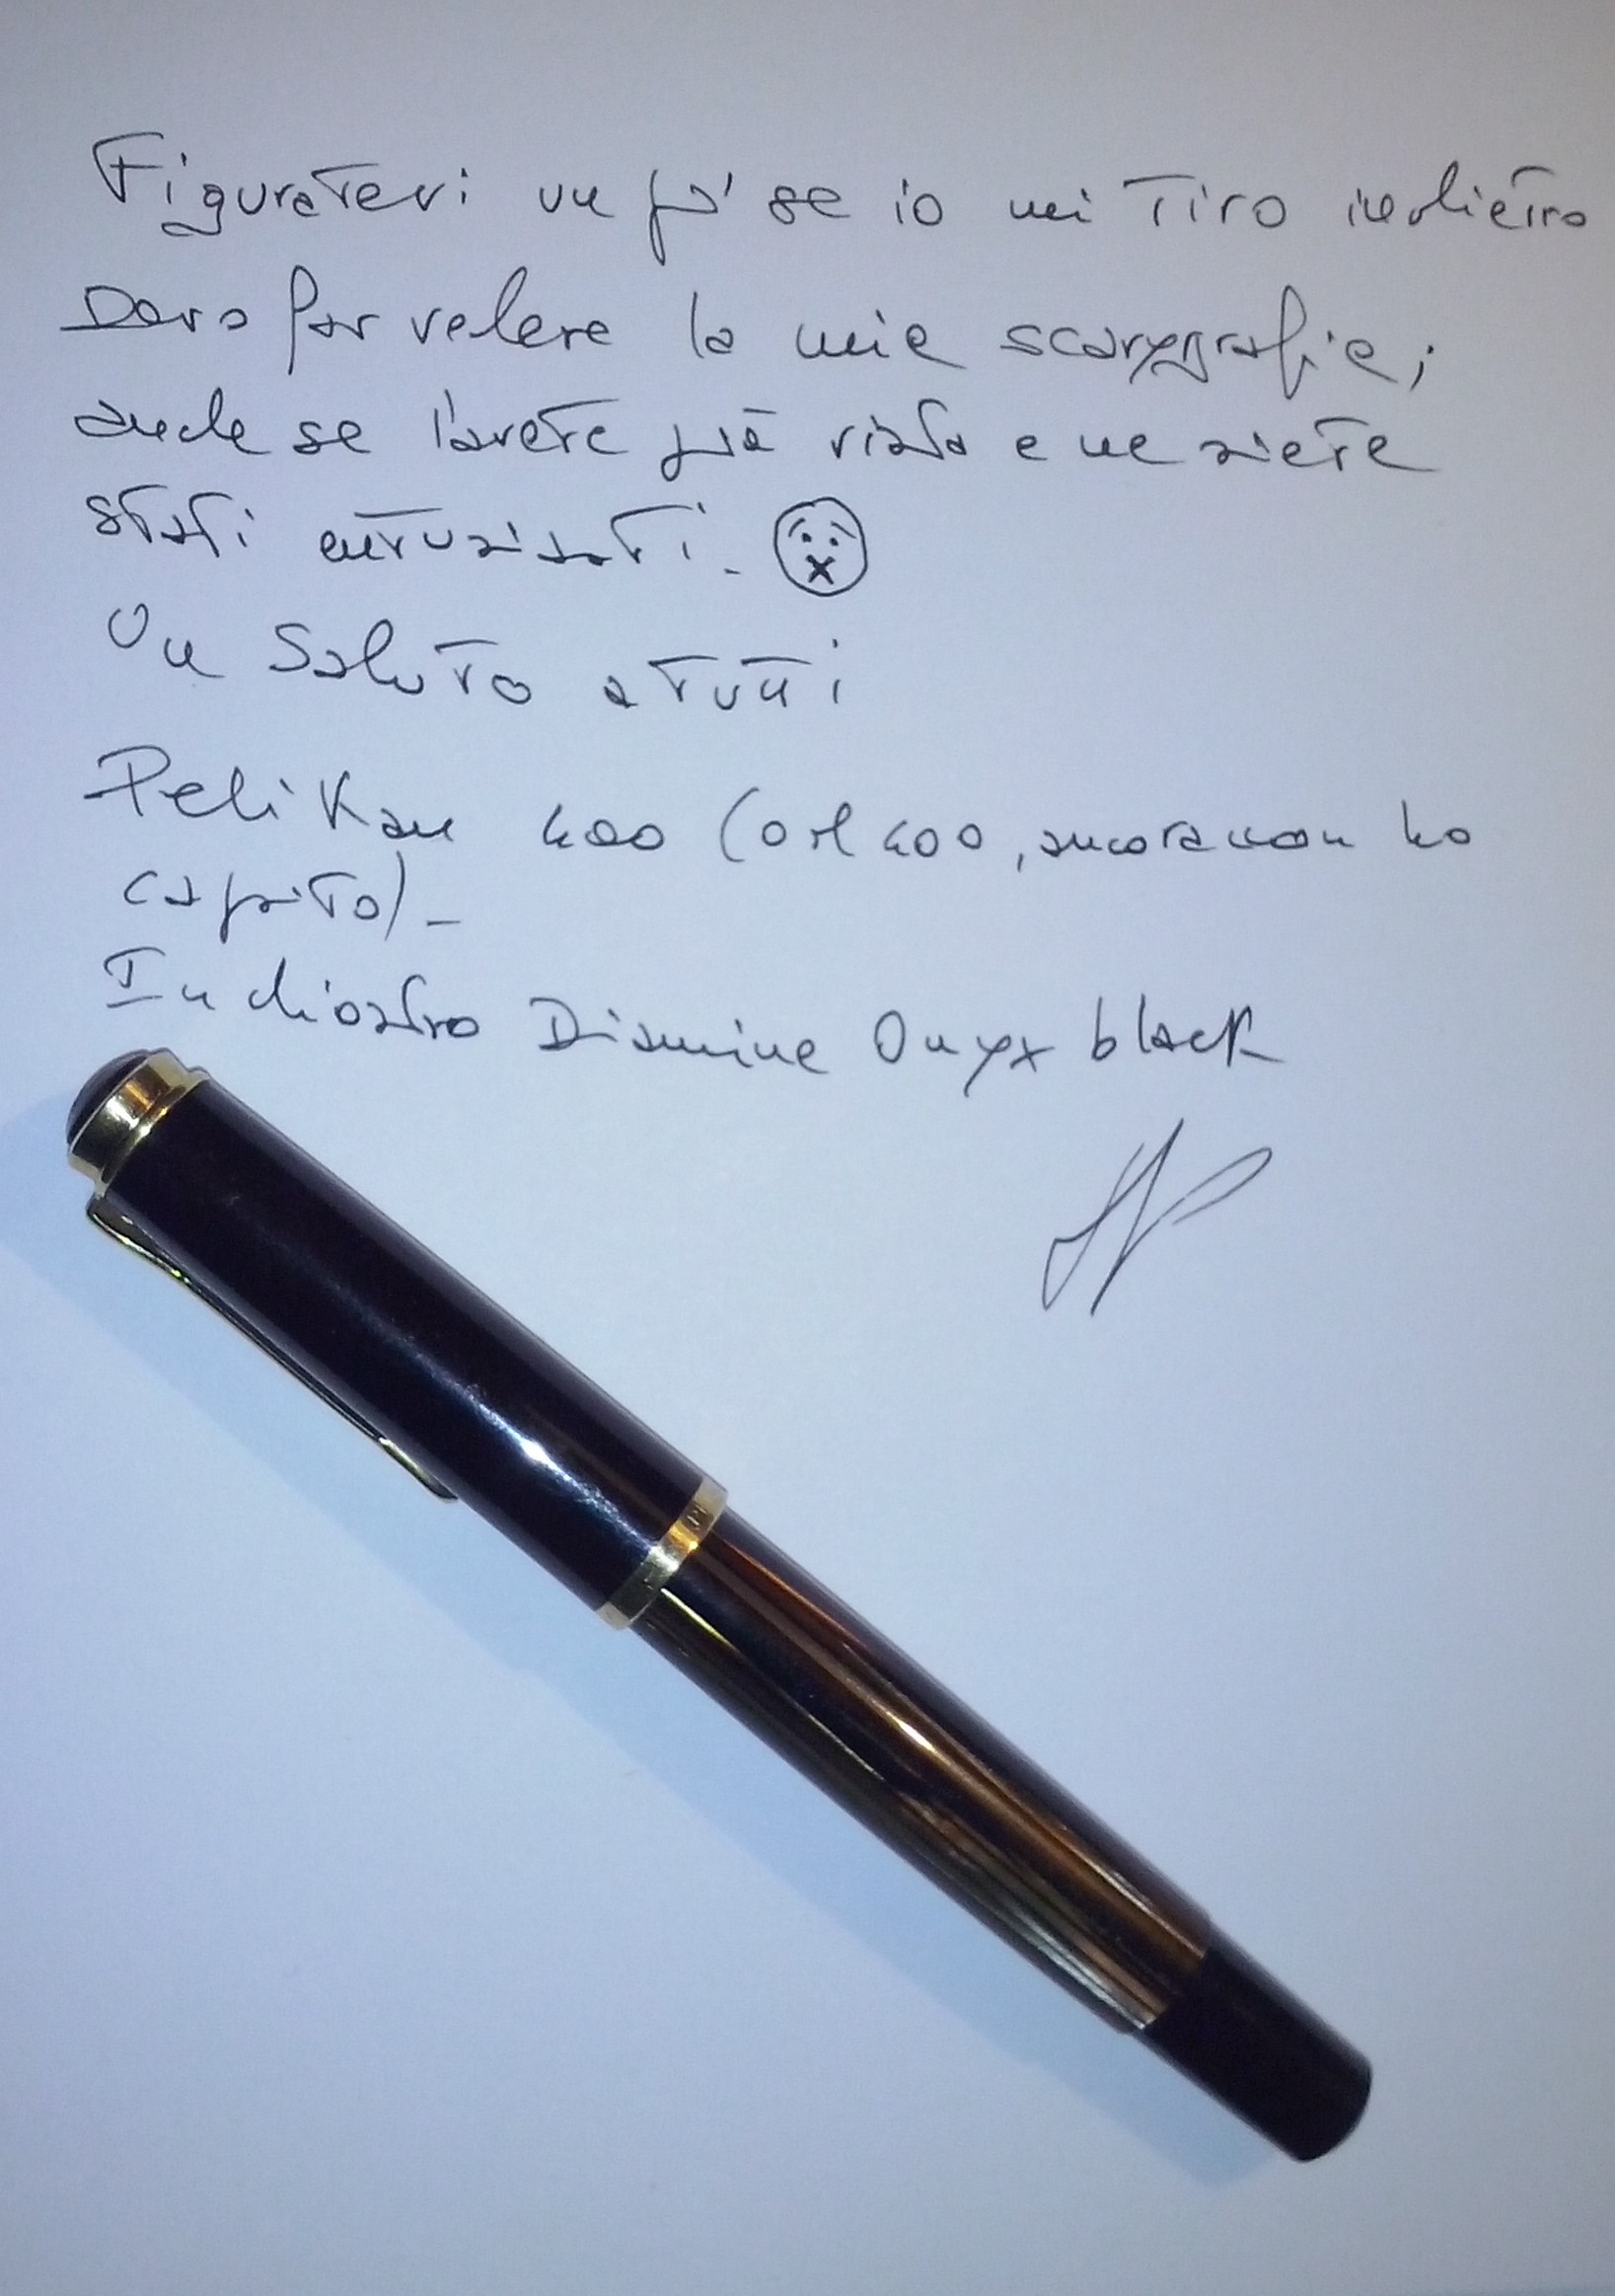 Figuratevi un po' se io mi tiro indietro
Devo far vedere la mia scarygrafia;
anche se l'avete già vista e ne siete
stati entusiasti.
Un Saluto a tutti
Pelikan 400 (o M400, ancora non ho
capito).
Inchiostro Diamine Onyx black